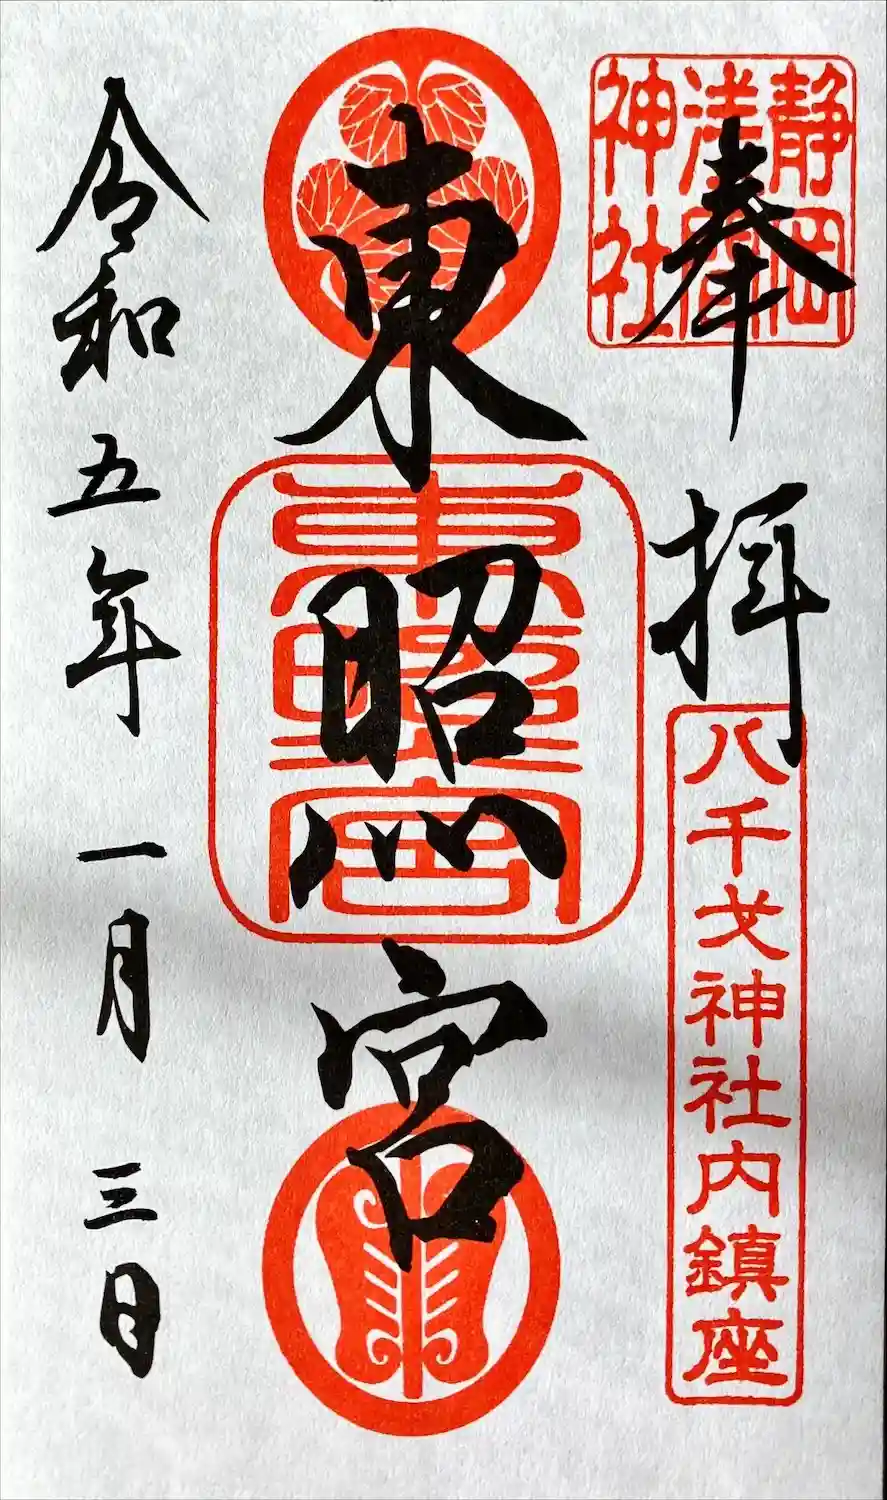 静岡
浅間
神社
奉拝
八千戈神社内鎮座
東照宮
東照宮
令和五年一月三日